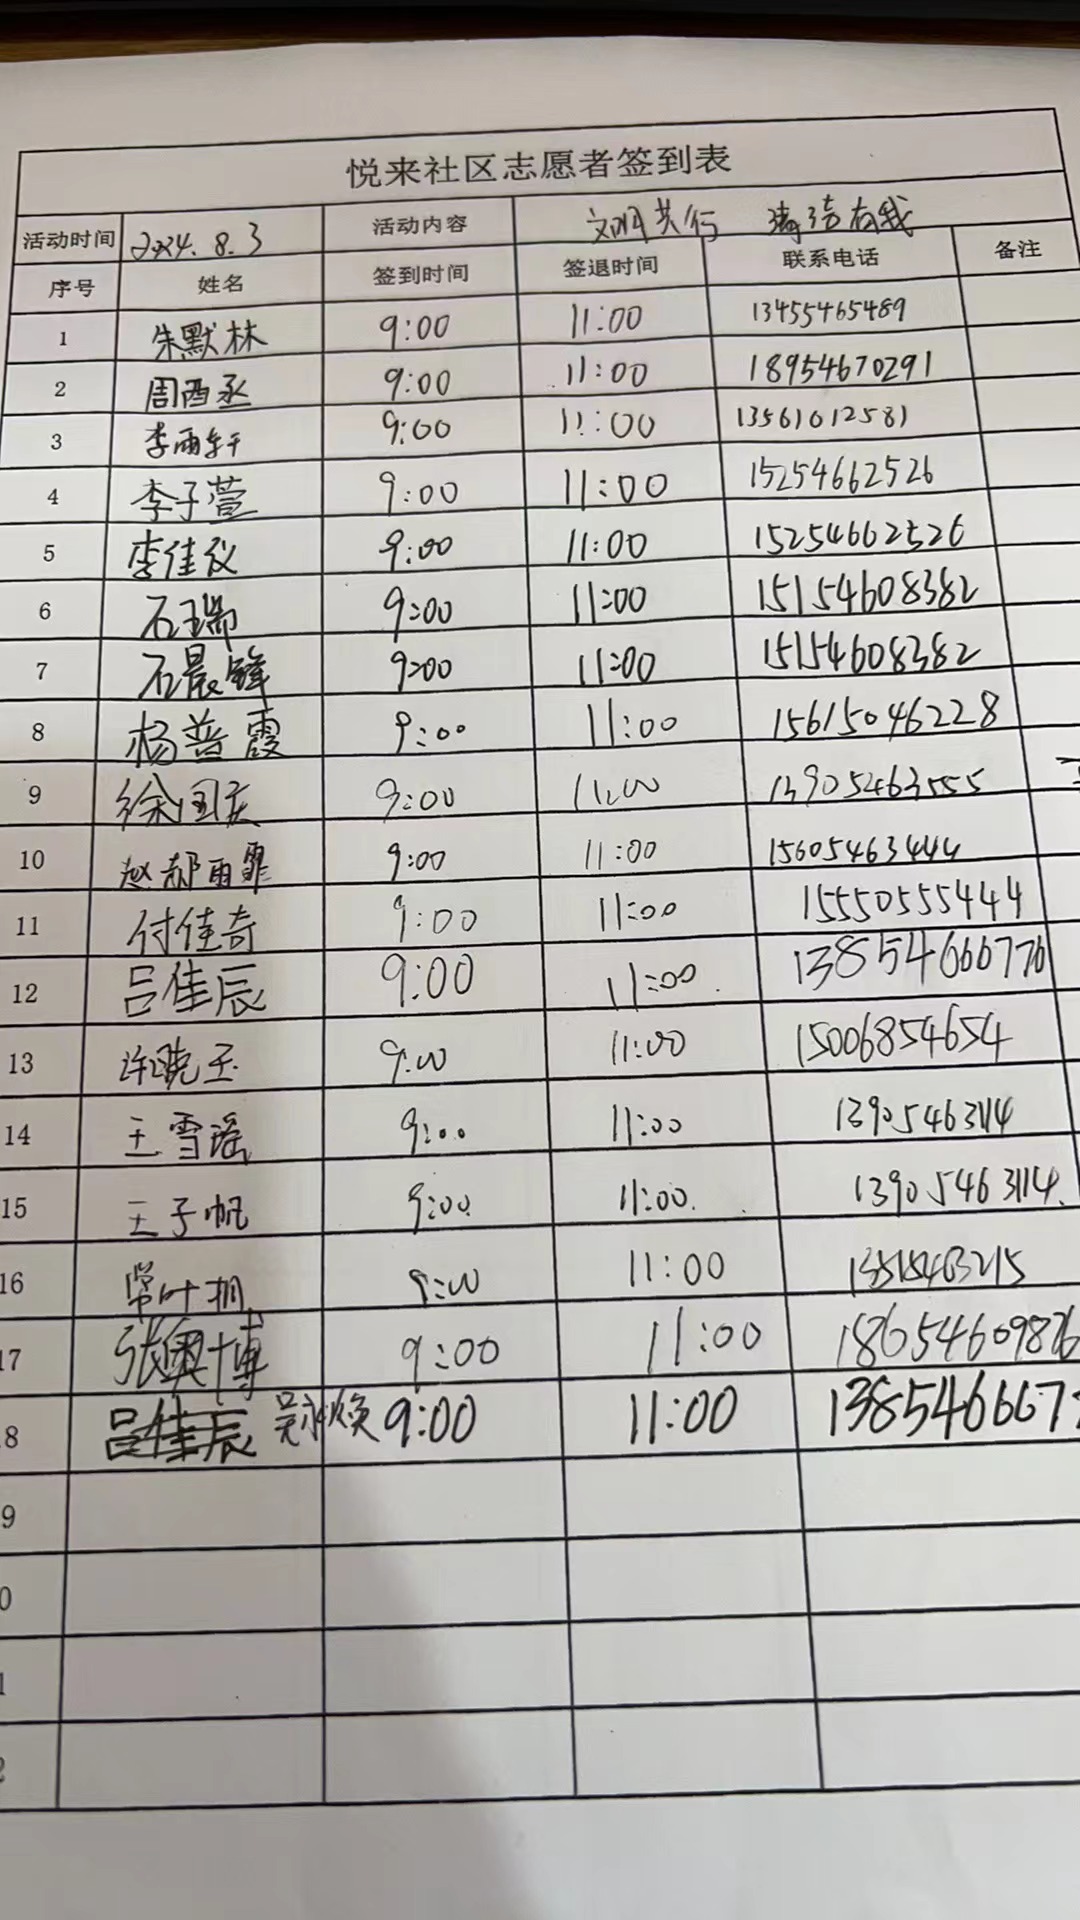 悦来社区志愿者签到表
活动时间 2024.8.3 活动内容 文明共行 清洁有我
序号 姓名 签到时间 签退时间 联系电话 备注
1 朱默林 9:00 11:00 13455465489
2 周酉丞 9:00 11:00 18954670291
3 李雨轩 9:00 11:00 13561012581
4 李子萱 9:00 11:00 15254662526
5 李佳仪 9:00 11:00 15254662526
6 石瑞 9:00 11:00 15154608382
7 石晨锋 9:00 11:00 15154608382
8 杨普霞 9:00 11:00 15615046228
9 徐国庆 9:00 11:00 13905463555
10 赵郝雨霏 9:00 11:00 15605463444
11 付佳奇 9:00 11:00 15550555444
12 吕佳辰 9:00 11:00 13854666776
13 许晓玉 9:00 11:00 15006854654
14 王雪瑶 9:00 11:00 13905463114
15 王子帆 9:00 11:00 13905463114
16 常叶桐 9:00 11:00 13515463215
17 张奥博 9:00 11:00 18654609876
8 吕佳辰 吴永焕 9:00 11:00 138546667
9
0
1
2